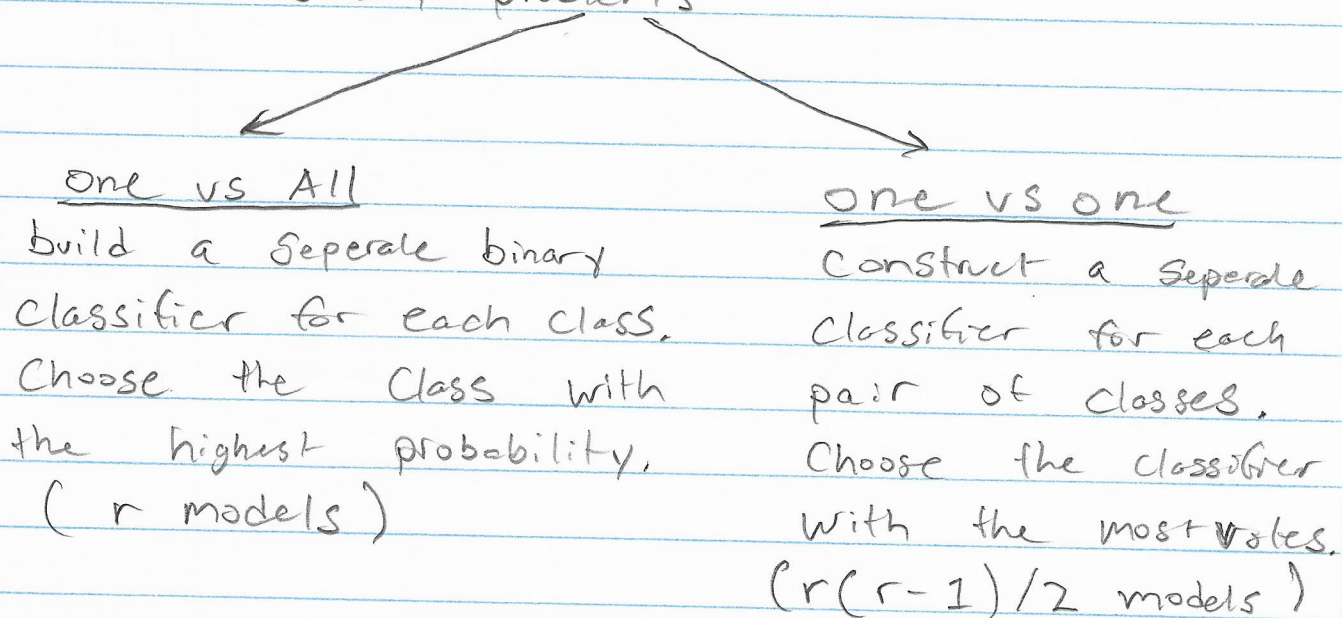 problems
one vs All
build a Seperate binary
Classifier for each class.
Choose the Class with
the highest probability.
( r models )
one vs one
Construct a Seperate
Classifier for each
pair of classes.
Choose the classifier
with the most votes.
(r(r-1)/2 models )